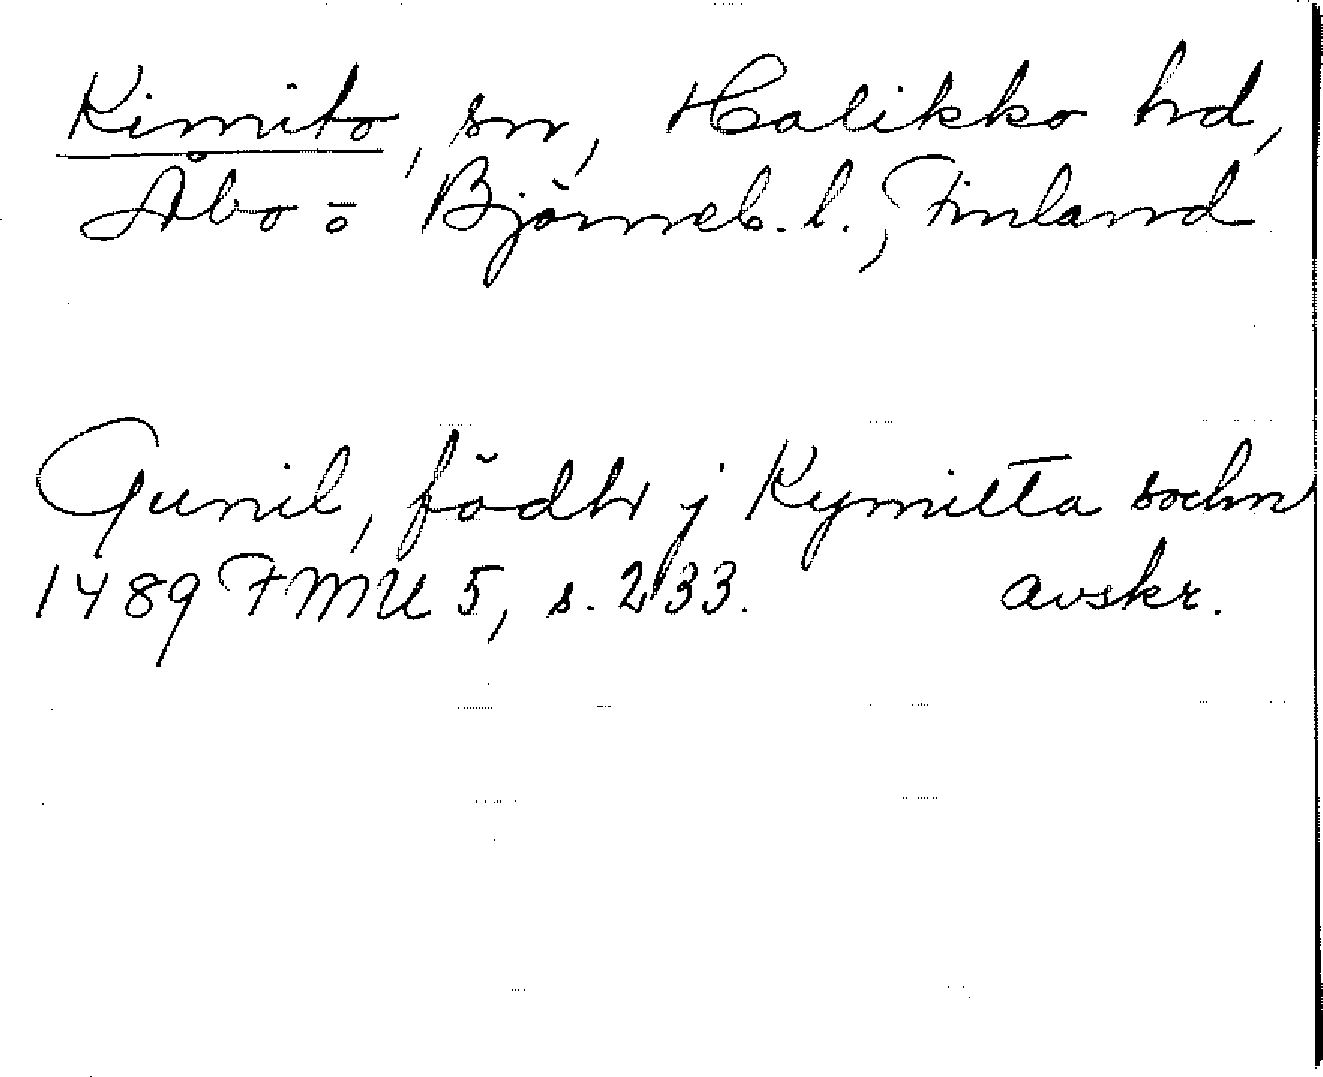 Kimito, sn, Halikko hd,
Åbo o Björneb. l., Finland
Gunil, född j Kymitta sochn
1489 FMU 5, s. 233. avskr.